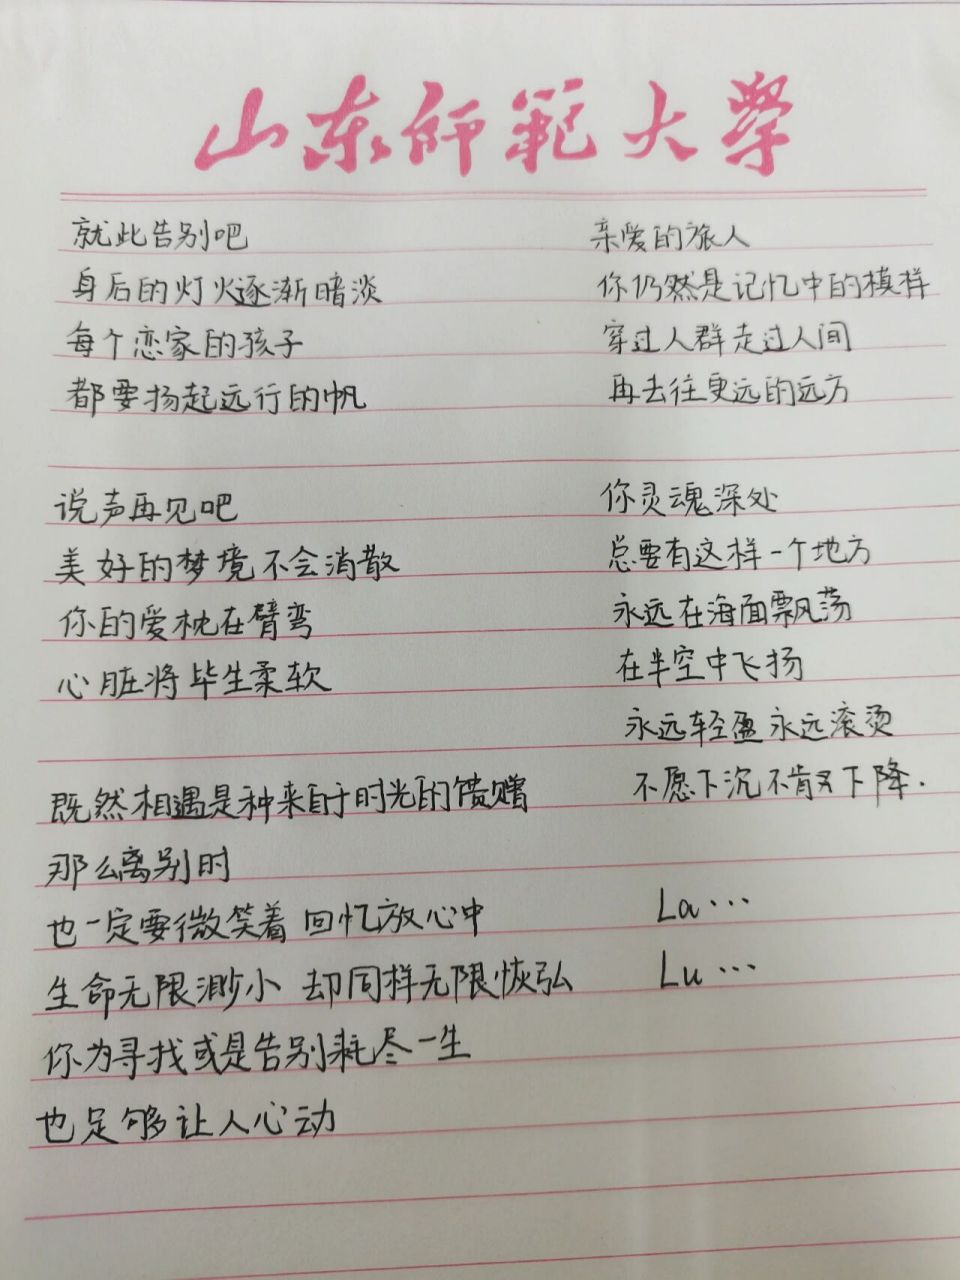 山东师範大學
就此告别吧
身后的灯火逐渐暗淡
每个恋家的孩子
都要扬起远行的帆
说声再见吧
美好的梦境不会消散
你的爱枕在臂弯
心脏将毕生柔软
既然相遇是种来自于时光的馈赠
那么离别时
也一定要微笑着 回忆放心中
生命无限渺小 却同样无限恢弘
你为寻找或是告别耗尽一生
也足够让人心动
亲爱的旅人
你仍然是记忆中的模样
穿过人群走过人间
再去往更远的远方
你灵魂深处
总要有这样一个地方
永远在海面飘荡
在半空中飞扬
永远轻盈 永远滚烫
不愿下沉 不肯下降.
La …
Lu …